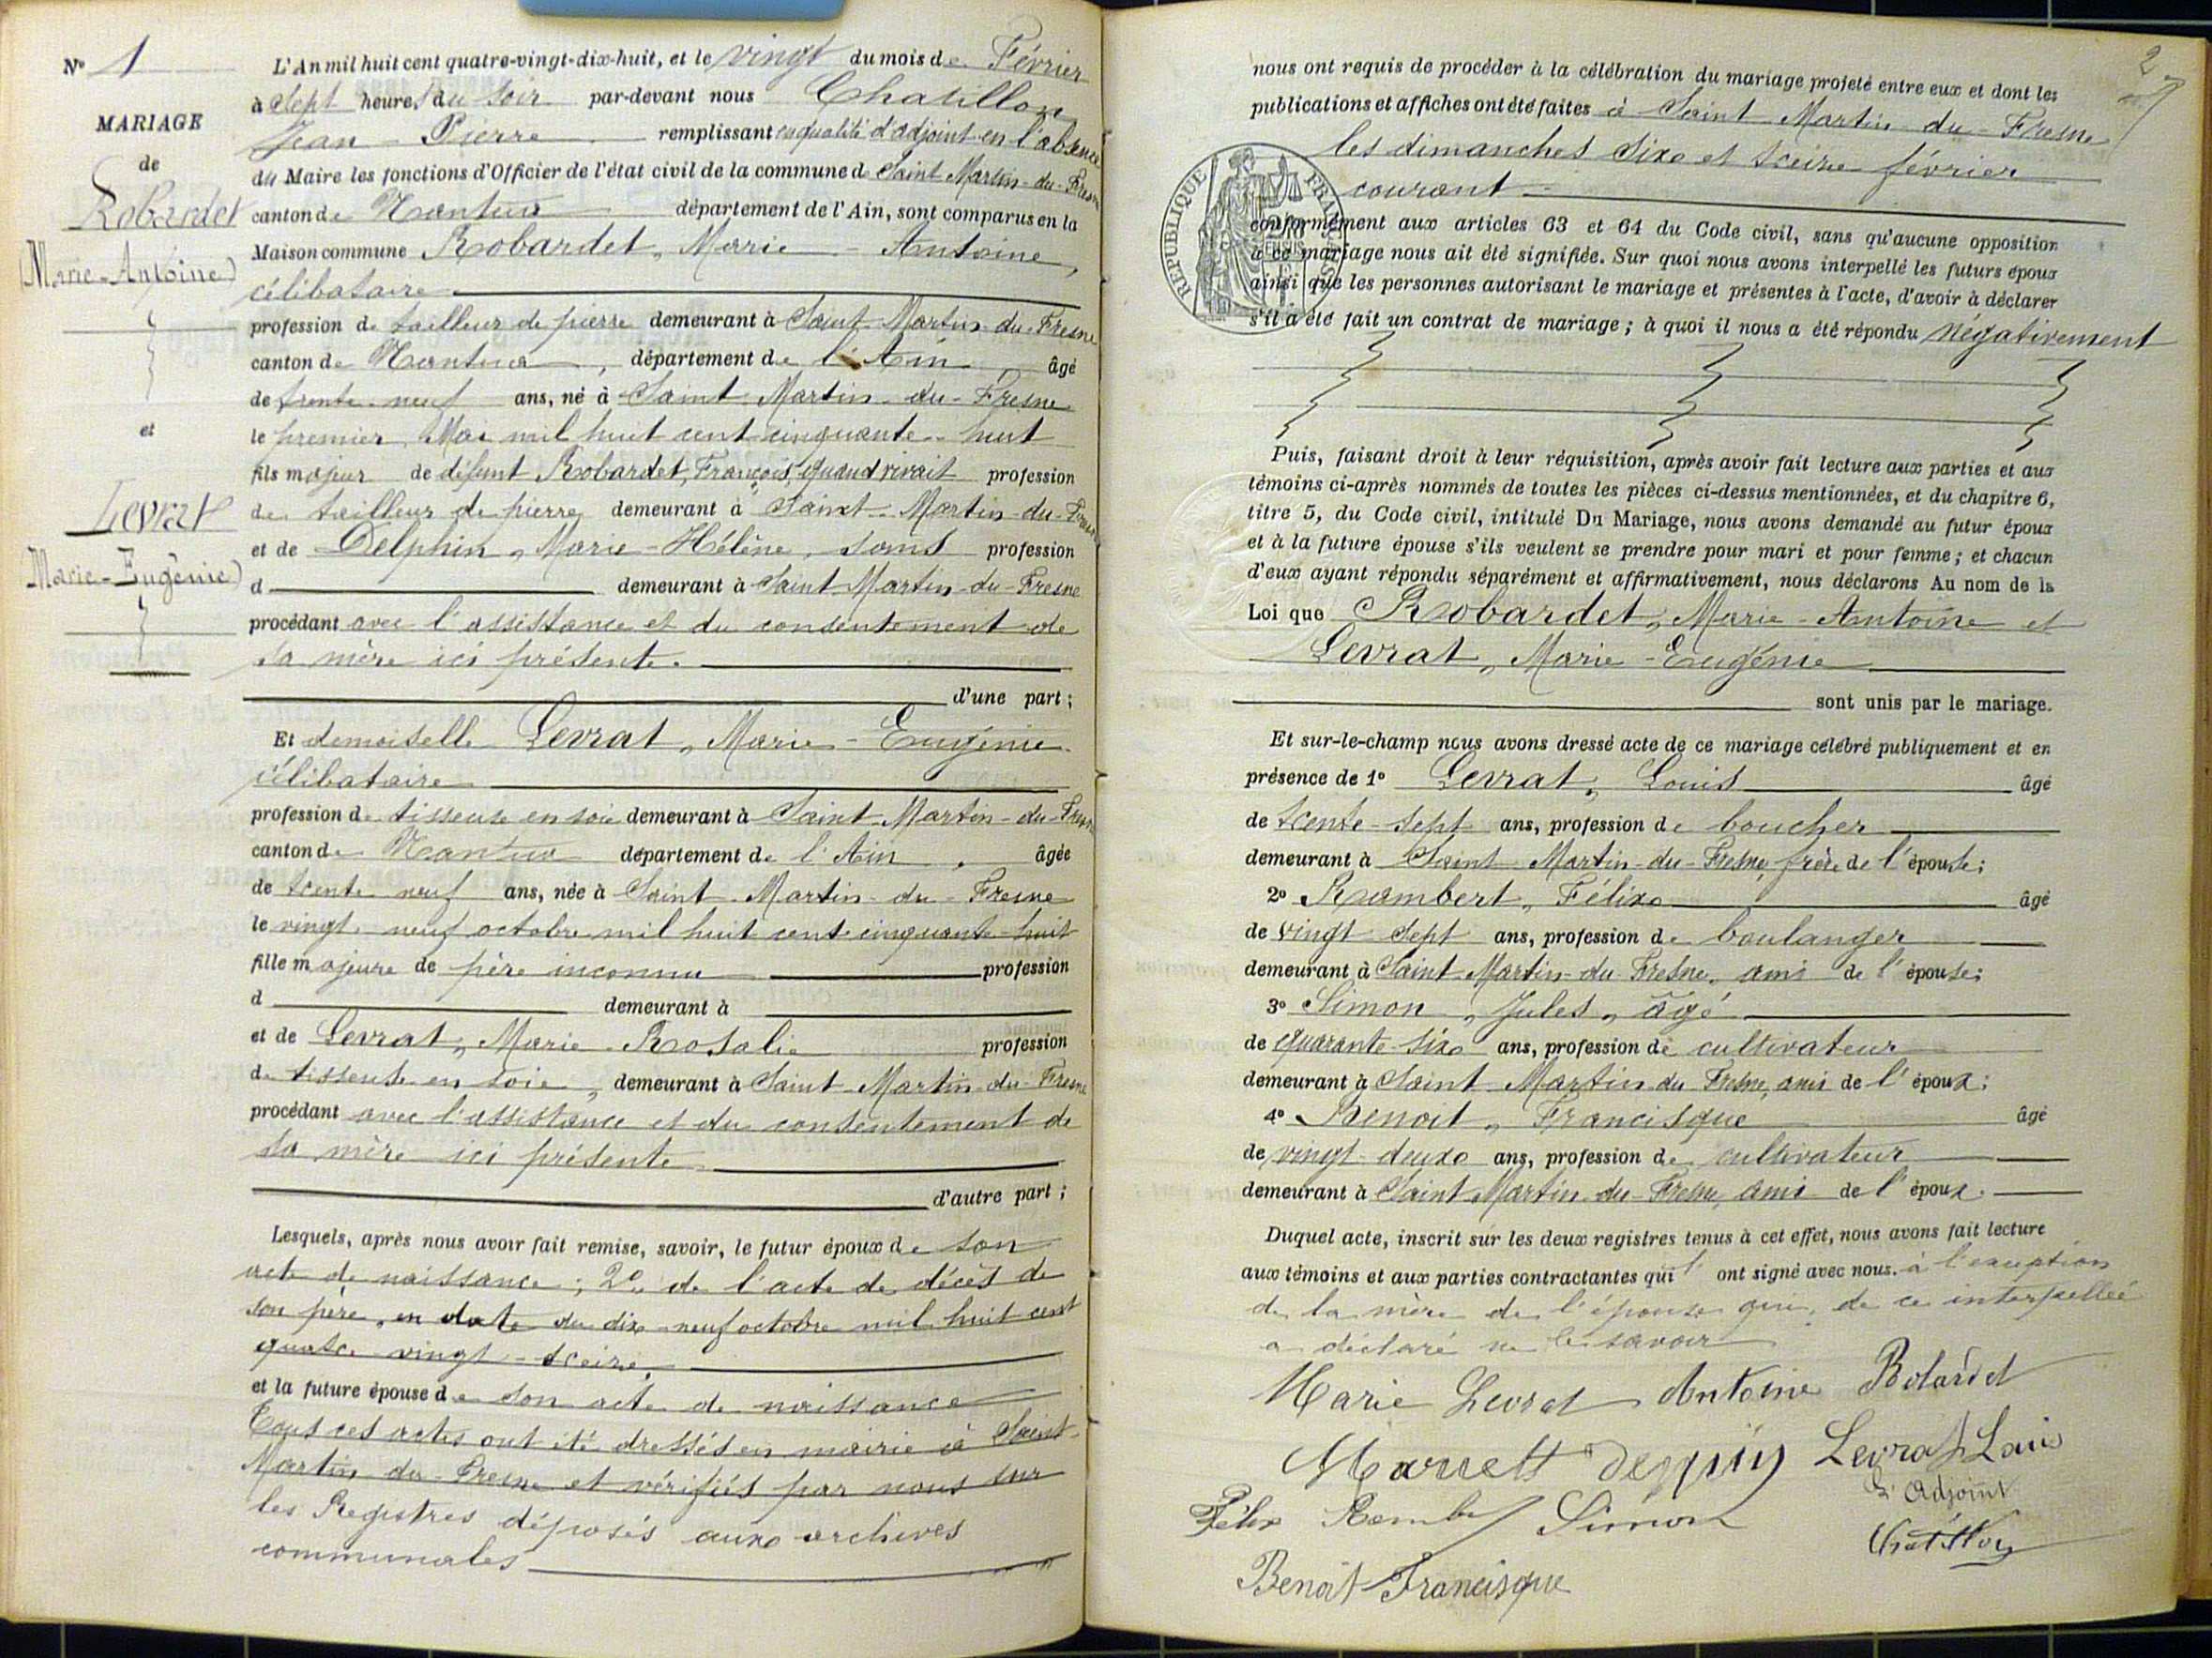 N° 1
MARIAGE
de
Robardet
(Marie-Antoine)
et
Levrat
(Marie-Eugénie)
L'An mil huit cent quatre-vingt-dix-huit, et le vingt du mois de Février
à Sept heures du soir par-devant nous Chatillon
Jean Pierre remplissant en qualité d'adjoint en l'absence
du Maire les fonctions d'Officier de l'état civil de la commune de Saint Martin-du-Fresne
canton de Nantua département de l'Ain, sont comparus en la
Maison commune Robardet, Marie-Antoine,
célibataire
profession de tailleur de pierre demeurant à Saint-Martin-du-Fresne
canton de Nantua, département de l'Ain, âgé
de trente-neuf ans, né à Saint-Martin-du-Fresne
le premier Mai mil huit cent cinquante-huit
fils majeur de défunt Robardet, François, quand vivait profession
de tailleur de pierre demeurant à Saint-Martin-du-Fresne
et de Delphin, Marie-Hélène, sans profession
d demeurant à Saint-Martin-du-Fresne
procédant avec l'assistance et du consentement de
sa mère ici présente.
d'une part;
Et demoiselle Levrat, Marie-Eugénie
célibataire
profession de tisseuse en soie demeurant à Saint-Martin-du-Fresne
canton de Nantua département de l'Ain, âgée
de trente neuf ans, née à Saint-Martin-du-Fresne
le vingt-neuf octobre mil huit cent cinquante-huit
fille majeure de père inconnu profession
d demeurant à
et de Levrat, Marie-Rosalie profession
de tisseuse en soie, demeurant à Saint-Martin-du-Fresne
procédant avec l'assistance et du consentement de
sa mère ici présente
d'autre part;
Lesquels, après nous avoir fait remise, savoir, le futur époux de son
acte de naissance; 2° de l'acte de décès de
son père, en date du dix-neuf octobre mil huit cent
quatre-vingt-treize,
et la future épouse de son acte de naissance
Tous ces actes ont été dressés en mairie à Saint-
Martin-du-Fresne et vérifiés par nous sur
les Registres déposés aux archives
communales
2
nous ont requis de procéder à la célébration du mariage projeté entre eux et dont les
publications et affiches ont été faites à Saint-Martin-du-Fresne
les dimanches six et treize février
courant
REPUBLIQUE FRANÇAISE
conformément aux articles 63 et 64 du Code civil, sans qu'aucune opposition
à ce mariage nous ait été signifiée. Sur quoi nous avons interpellé les futurs époux
ainsi que les personnes autorisant le mariage et présentes à l'acte, d'avoir à déclarer
s'il a été fait un contrat de mariage; à quoi il nous a été répondu négativement
Puis, faisant droit à leur réquisition, après avoir fait lecture aux parties et aux
témoins ci-après nommés de toutes les pièces ci-dessus mentionnées, et du chapitre 6,
titre 5, du Code civil, intitulé Du Mariage, nous avons demandé au futur époux
et à la future épouse s'ils veulent se prendre pour mari et pour femme; et chacun
d'eux ayant répondu séparément et affirmativement, nous déclarons Au nom de la
Loi que Robardet, Marie-Antoine et
Levrat, Marie-Eugénie
sont unis par le mariage.
Et sur-le-champ nous avons dressé acte de ce mariage célébré publiquement et en
présence de 1° Levrat, Louis âgé
de trente-sept ans, profession de boucher
demeurant à Saint-Martin-du-Fresne, frère de l'épouse;
2° Rambert, Félix âgé
de vingt sept ans, profession de boulanger
demeurant à Saint-Martin-du-Fresne, ami de l'épouse;
3° Simon, Jules, âgé
de quarante-six ans, profession de cultivateur
demeurant à Saint-Martin du Fresne, ami de l'époux;
4° Benoit, Francisque âgé
de vingt-deux ans, profession de cultivateur
demeurant à Saint-Martin-du-Fresne, ami de l'époux.
Duquel acte, inscrit sur les deux registres tenus à cet effet, nous avons fait lecture
aux témoins et aux parties contractantes qui ont signé avec nous. à l'exception
de la mère de l'épouse qui, de ce interpellée
a déclaré ne le savoir
Marie Levrat Antoine Robardet
Levrat Louis
Félix Rambert Simon
L'Adjoint
Chatillon
Benoit Francisque